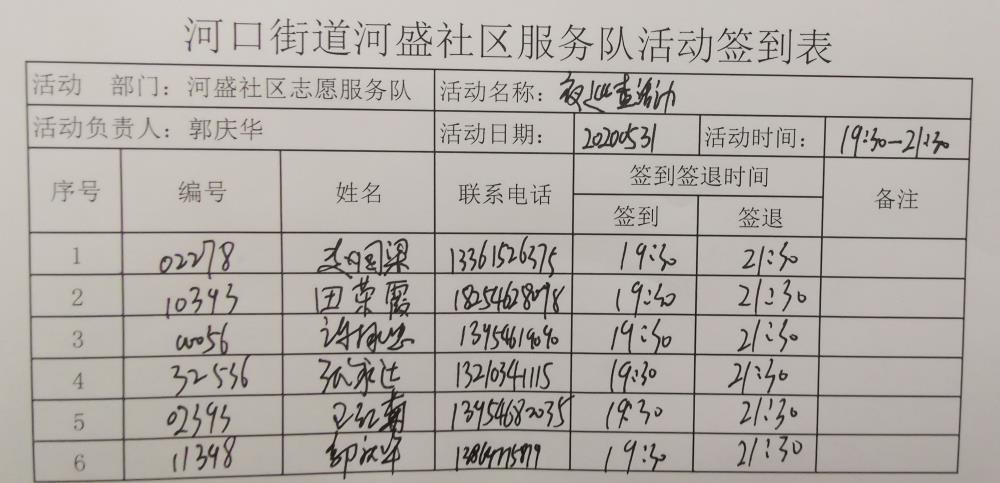 河口街道河盛社区服务队活动签到表
活动 部门：河盛社区志愿服务队 活动名称：夜巡查活动
活动负责人：郭庆华 活动日期： 20200531 活动时间： 19:30-21:30
序号 编号 姓名 联系电话 签到签退时间 备注
签到 签退
1 02278 13361526375 19:30 21:30
2 10393 田荣霞 18254628098 19:30 21:30
3 13954619090 19:30 21:30
4 32536 13210341115 19:30 21:30
5 02393 13954682035 19:30 21:30
6 11398 郭庆华 19:30 21:30